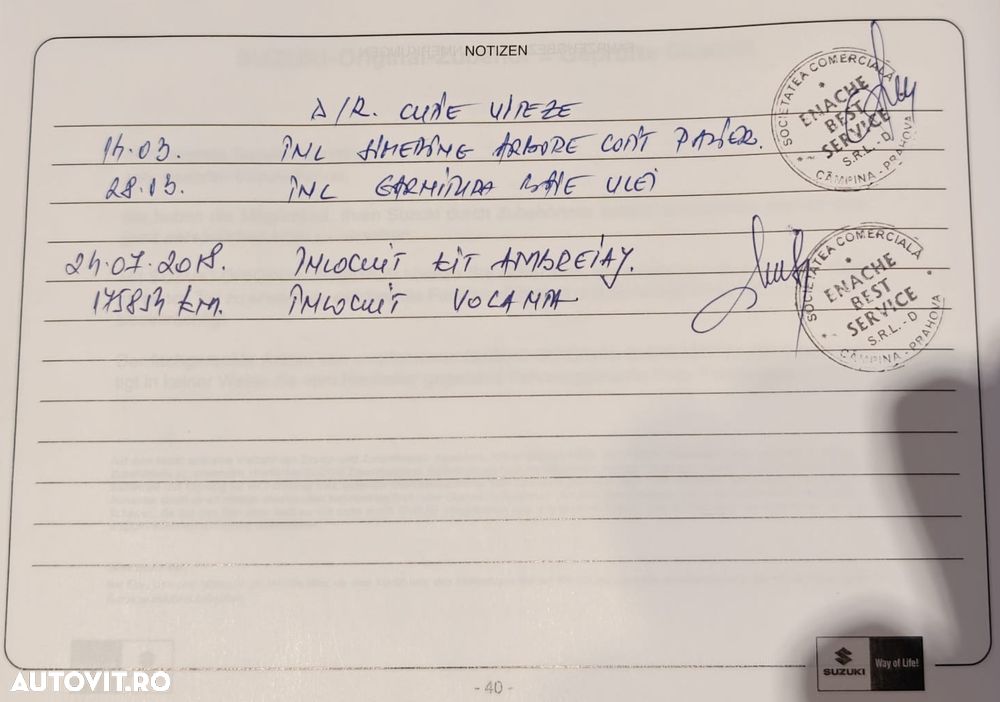 NOTIZEN
D/R. CUTIE VITEZE
14.03. INL SIMERING ARBORE COTIT P
28.03. INL GARNITURA BAIE ULEI
24.07.2018. ÎNLOCUIT KIT AMBREIAJ.
175854 km. ÎNLOCUIT VOLANTA
SOCIETATEA COMERCIALĂ
ENACHE
BEST
SERVICE
S.R.L. - D
CÂMPINA - PRAHOVA
SOCIETATEA COMERCIALĂ
ENACHE
BEST
SERVICE
S.R.L. - D
CÂMPINA - PRAHOVA
SUZUKI
Way of Life!
- 40 -
AUTOVIT.RO